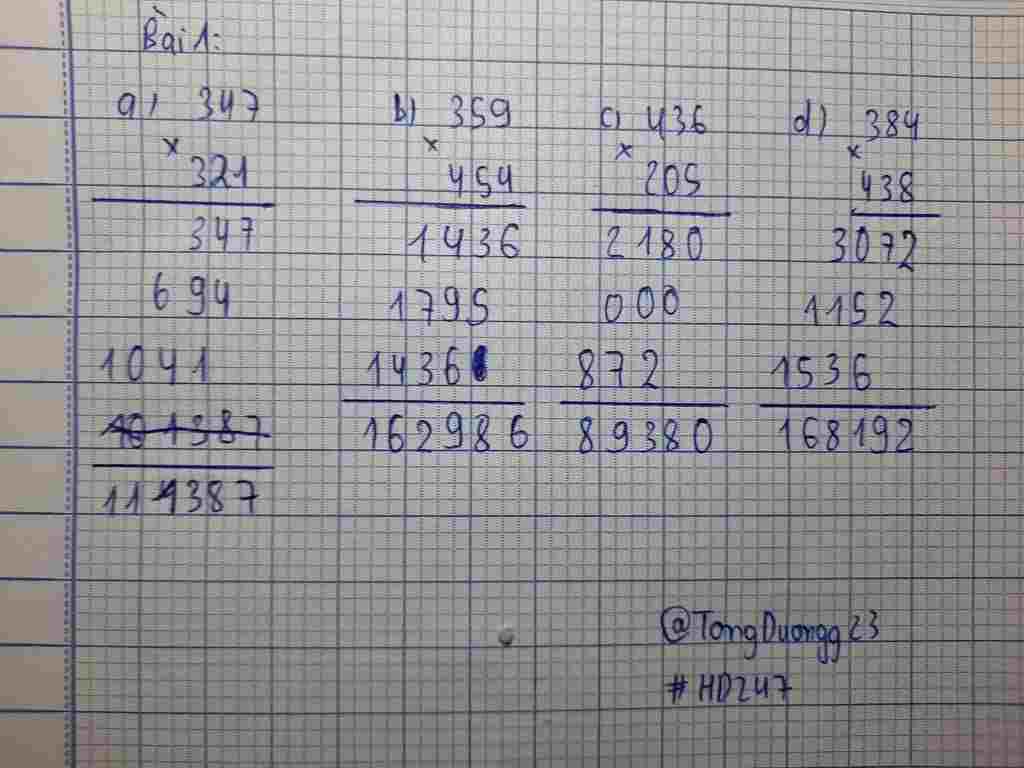 Bài 1:
a) 347 b) 359 c) 436 d) 384
x x x x
321 454 205 438
347 1436 2180 3072
694 1795 000 1152
1041 1436 872 1536
162986 89380 168192
111387
@TongDuongg23
#HD247